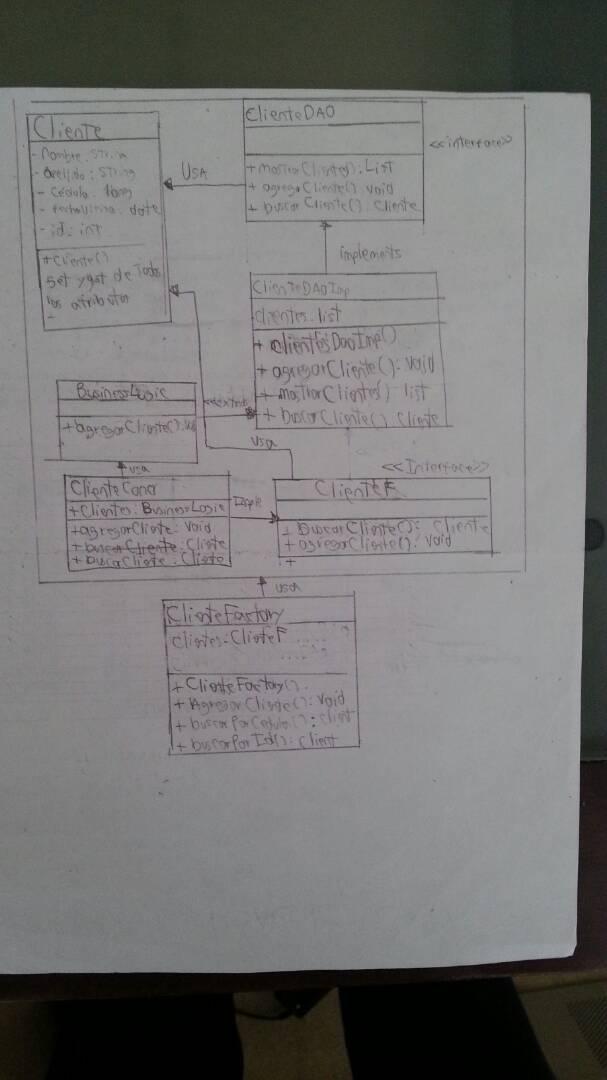 Cliente
- Nombre: String
- Apellido: String
- Cedula: long
- : date
- id: int
+ Cliente()
Set y get de Todos
los atributos
Usa
ClienteDAO
<<interface>>
+ mostrarClientes(): List
+ agregarCliente(): void
+ buscarCliente(): Cliente
implements
ClienteDAOImp
clientes: list
+ clientesDaoImp()
+ agregarCliente(): void
+ mostrarClientes(): list
+ buscarCliente(): Cliente
BusinessLogic
+ agregarCliente():
usa
usa
<<Interface>>
ClienteF
+ BuscarCliente(): Cliente
+ agregarCliente(): void
+
+ Clientes: BusinessLogic
+ agregarCliente: void
+ buscarCliente: Cliente
+ buscarCliente: Cliente
usa
ClienteFactory
clientes: ClienteF
+ ClienteFactory()
+ AgregarCliente(): void
+ buscarPorCedula(): client
+ buscarPorId(): client